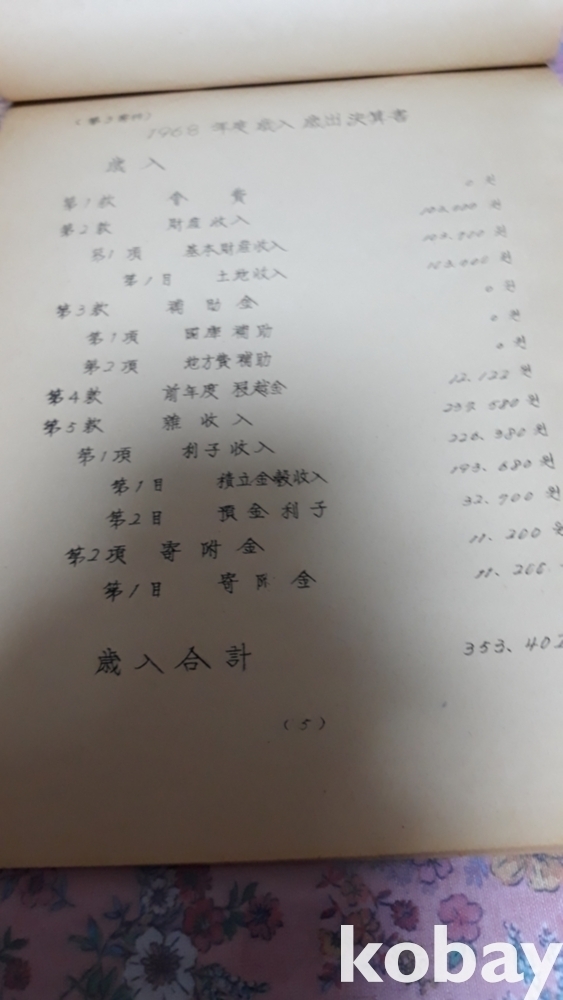 1968 年度 歲入 歲出 決算書
歲入
第1款 會費 0 원
第2款 財産收入
第1項 基本財産收入
第1目 土地收入
第3款 補助金 0 원
第1項 国庫補助 0 원
第2項 地方費補助 0 원
第4款 前年度 12.122 원
第5款 雜收入
第1項 利子收入
第1目 積立金穀收入 193.680 원
第2目 預金利子 32.700 원
第2項 寄附金 11.200
第1目 寄附金 11.200
歲入合計 353.402
(5)
kobay